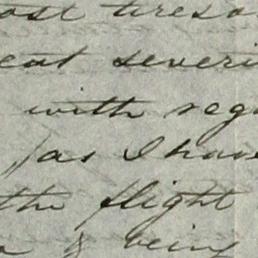 ost tireso
eat severi
with rega
, as I have
the flight
& being